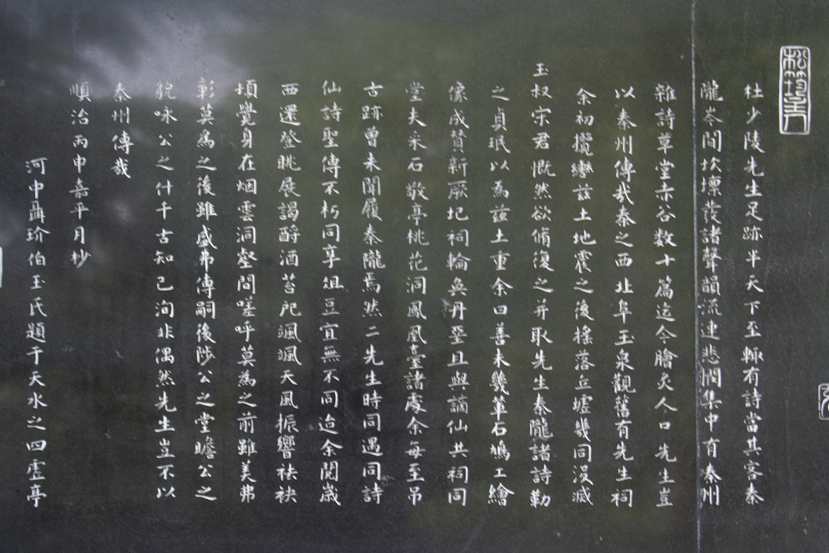 杜少陵先生足跡半天下至輒有詩當其客秦
隴岺間坎壈發諸聲韻流連悲憫集中有秦州
雜詩草堂赤谷数十篇迄今膾炙人口先生豈
以秦州傳㦲秦之西北阜玉泉觀舊有先生祠
余初攬轡茲土地震之後搖落丘墟幾同沒滅
玉叔宋君慨然欲脩復之并取先生秦隴諸詩勒
之貞珉以為茲土重余曰善未幾革石鳩工繪
像咸賛新厥圮祠輪奐丹堊且與謫仙共祠同
堂夫采石敬亭桃花洞鳳凰臺諸處余每至吊
古跡曾未聞履秦隴焉然二先生時同遇同詩
仙詩聖傳不朽同享俎豆宜無不同迨余閱歲
西還登眺展謁酹酒苔屺颯颯天風振響袂袂
頃覺身在烟雲洞壑間嗟呼莫為之前雖美弗
彰莫為之後雖盛弗傳嗣後陟公之堂瞻公之
貌咏公之什千古知己洵非偶然先生豈不以
秦州傳㦲
順治丙申嘉平月杪
河中聶玠伯玉氏題于天水之四虛亭